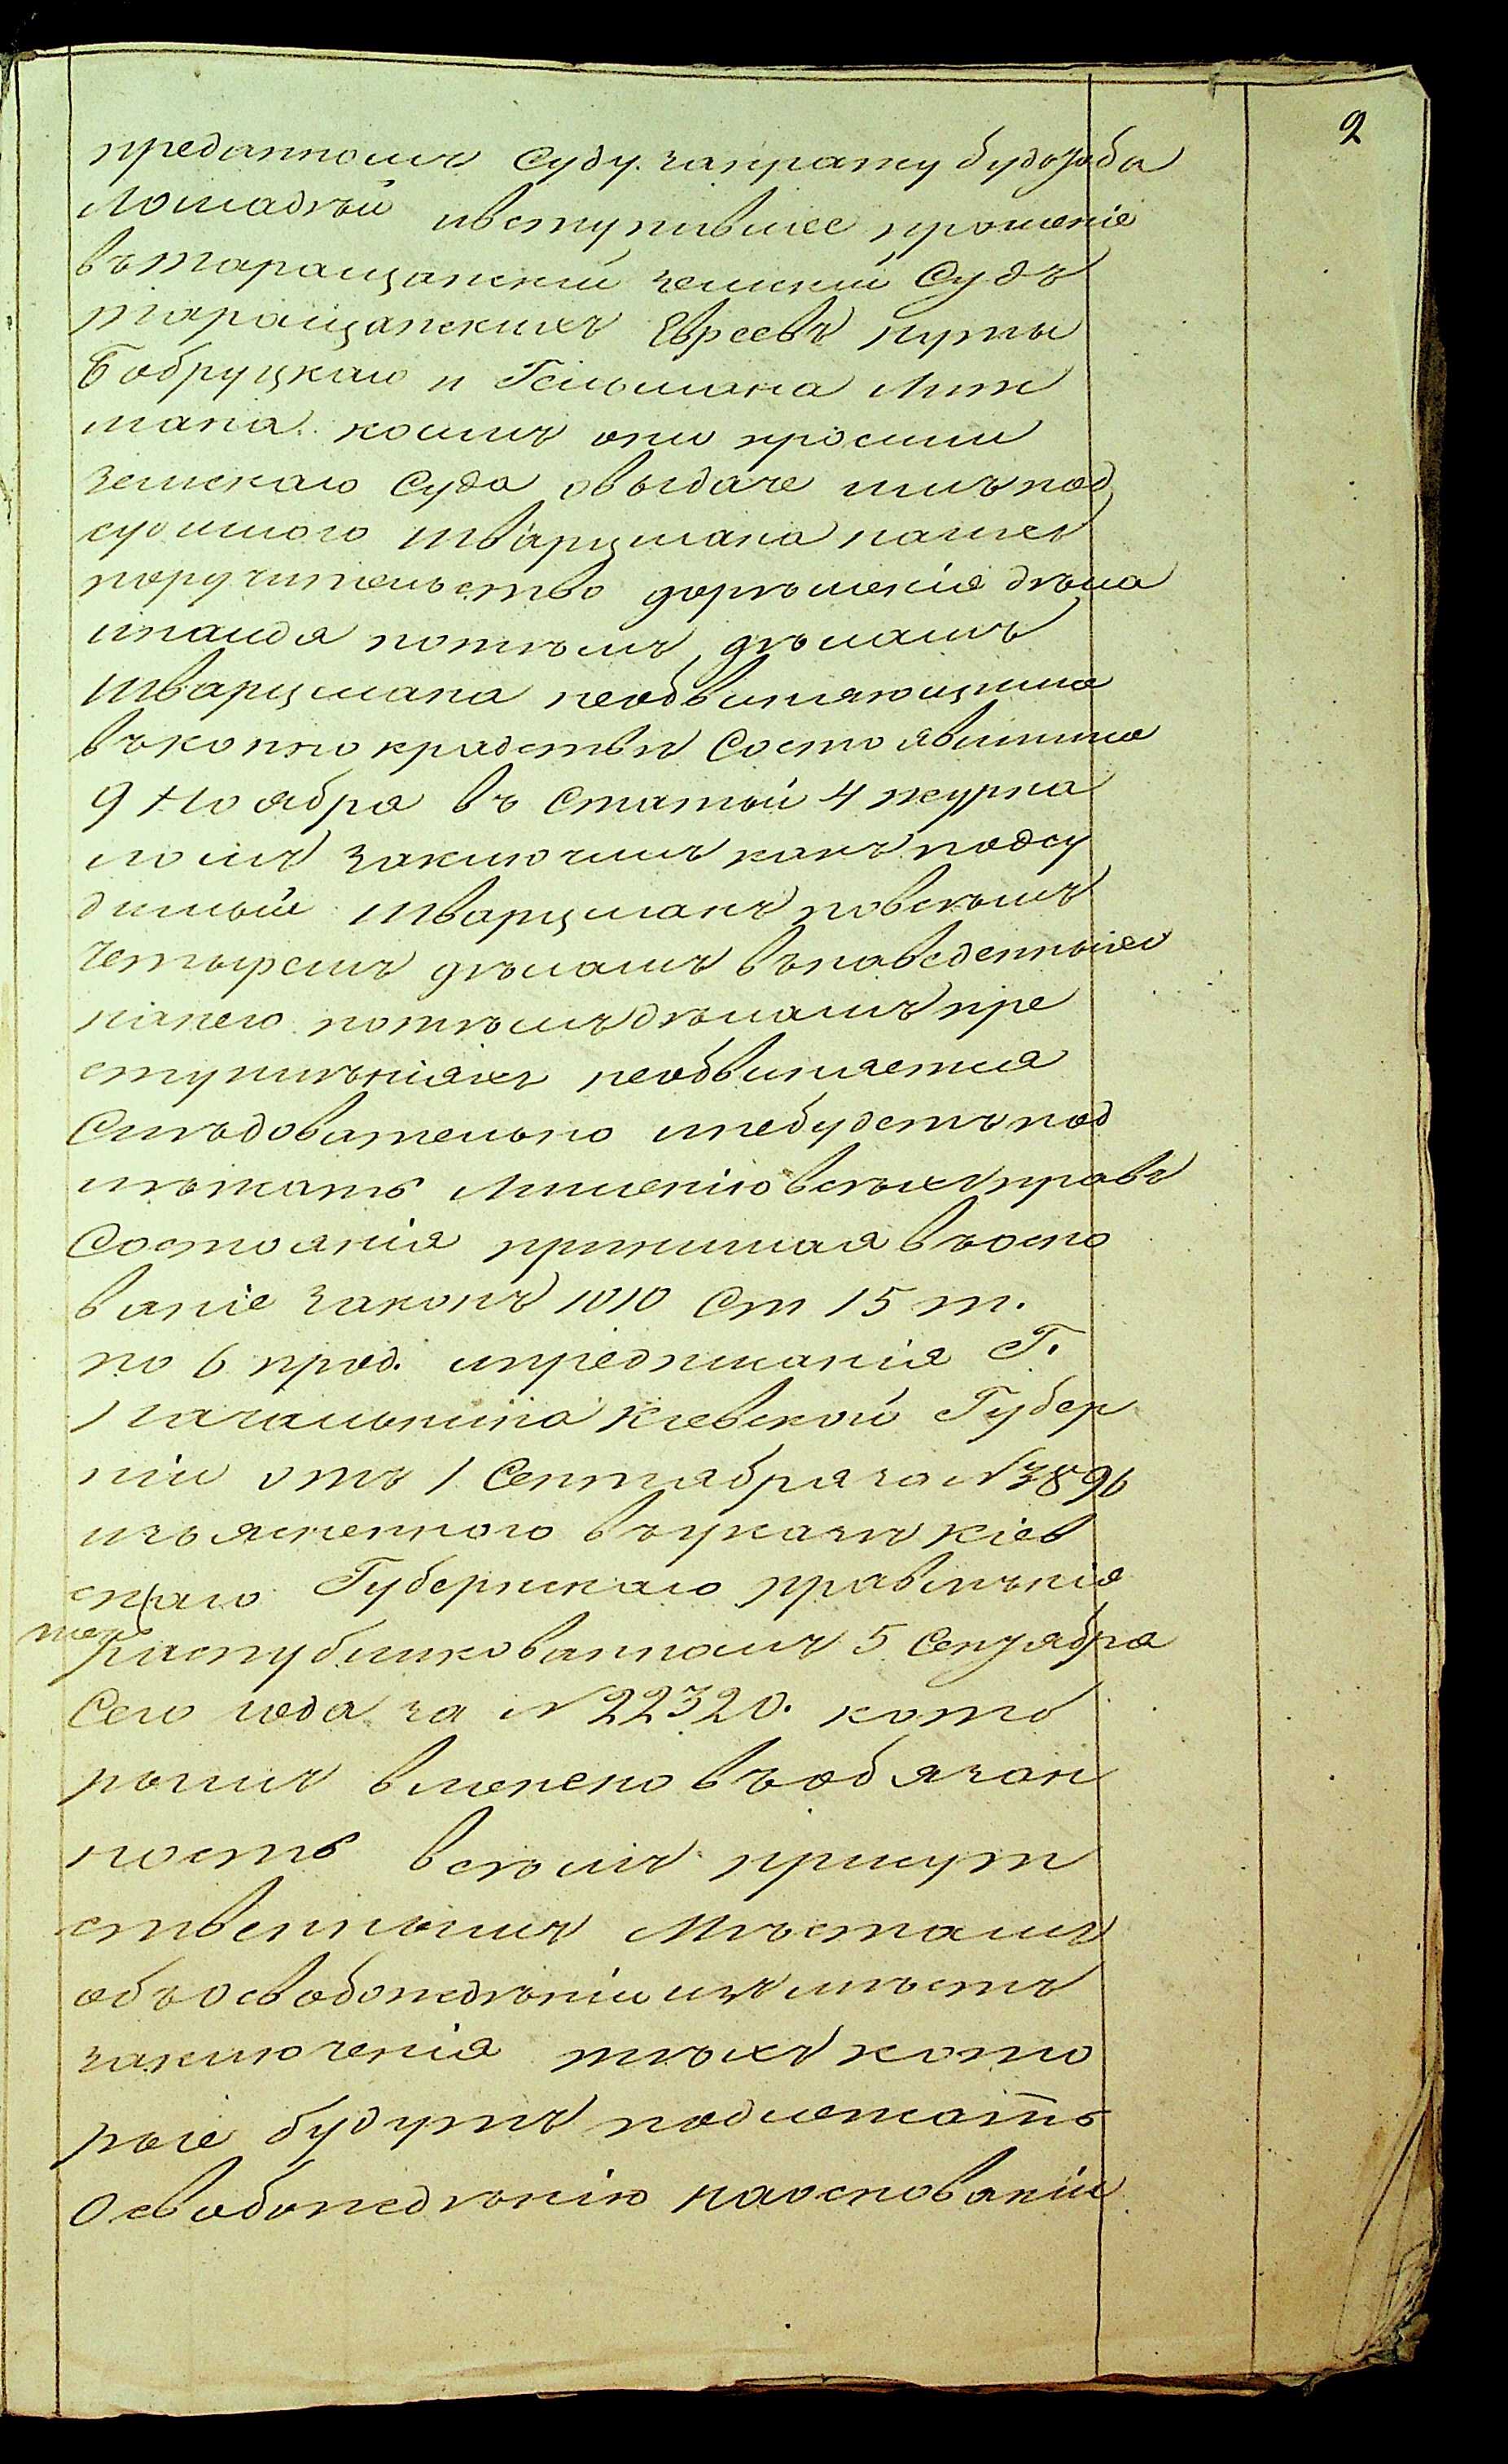 2
преданномъ Суду. закражу
лошадѣй ивступившее прошеніе
въ таращанскій земскій Судъ
таращанскихъ Евреевъ нуты
Бобруцкаго и Гельмана Лит
мана. коимъ они просили
земскаго Суда овыдаче имъ под
судимого Шварцмана на ихъ
поручительство дорѣшенія дѣла
инайдя потѣмъ дѣламъ
Шварцмана необвиняющимся
въ коннокрадствѣ Состоявшимся
9 Ноября въ Статьи 4 журна
ломъ заключилъ какъ подсу
димый Шварцманъ повсемъ
четыремъ дѣламъ въ поведенныхъ
нанего потѣмъ дѣламъ пре
ступлѣніяхъ необвиняется
Слѣдовательно инебудетъ под
лѣжать Лишенію всѣхъ правъ
Состоянія принимая въ осно
ваніе законъ 1010 Ст 15 т.
по 6 прод. ипредписанія Г.
Начальника Кіевской Губер
ніи отъ 1 Сентября за N 3896
изъясненного въ указѣ Кіев
скаго Губернскаго правлѣнія
распубликованномъ 5 Сентября
Сего года за N 22320. кото
рымъ вменено въ обязан
ность всѣмъ присут
ственнымъ Мѣстамъ
объ Освобожедѣніи изъ мѣстъ
заключенія тѣхъ кото
рые будутъ подлежать
Освобожедѣнію наоснованіи